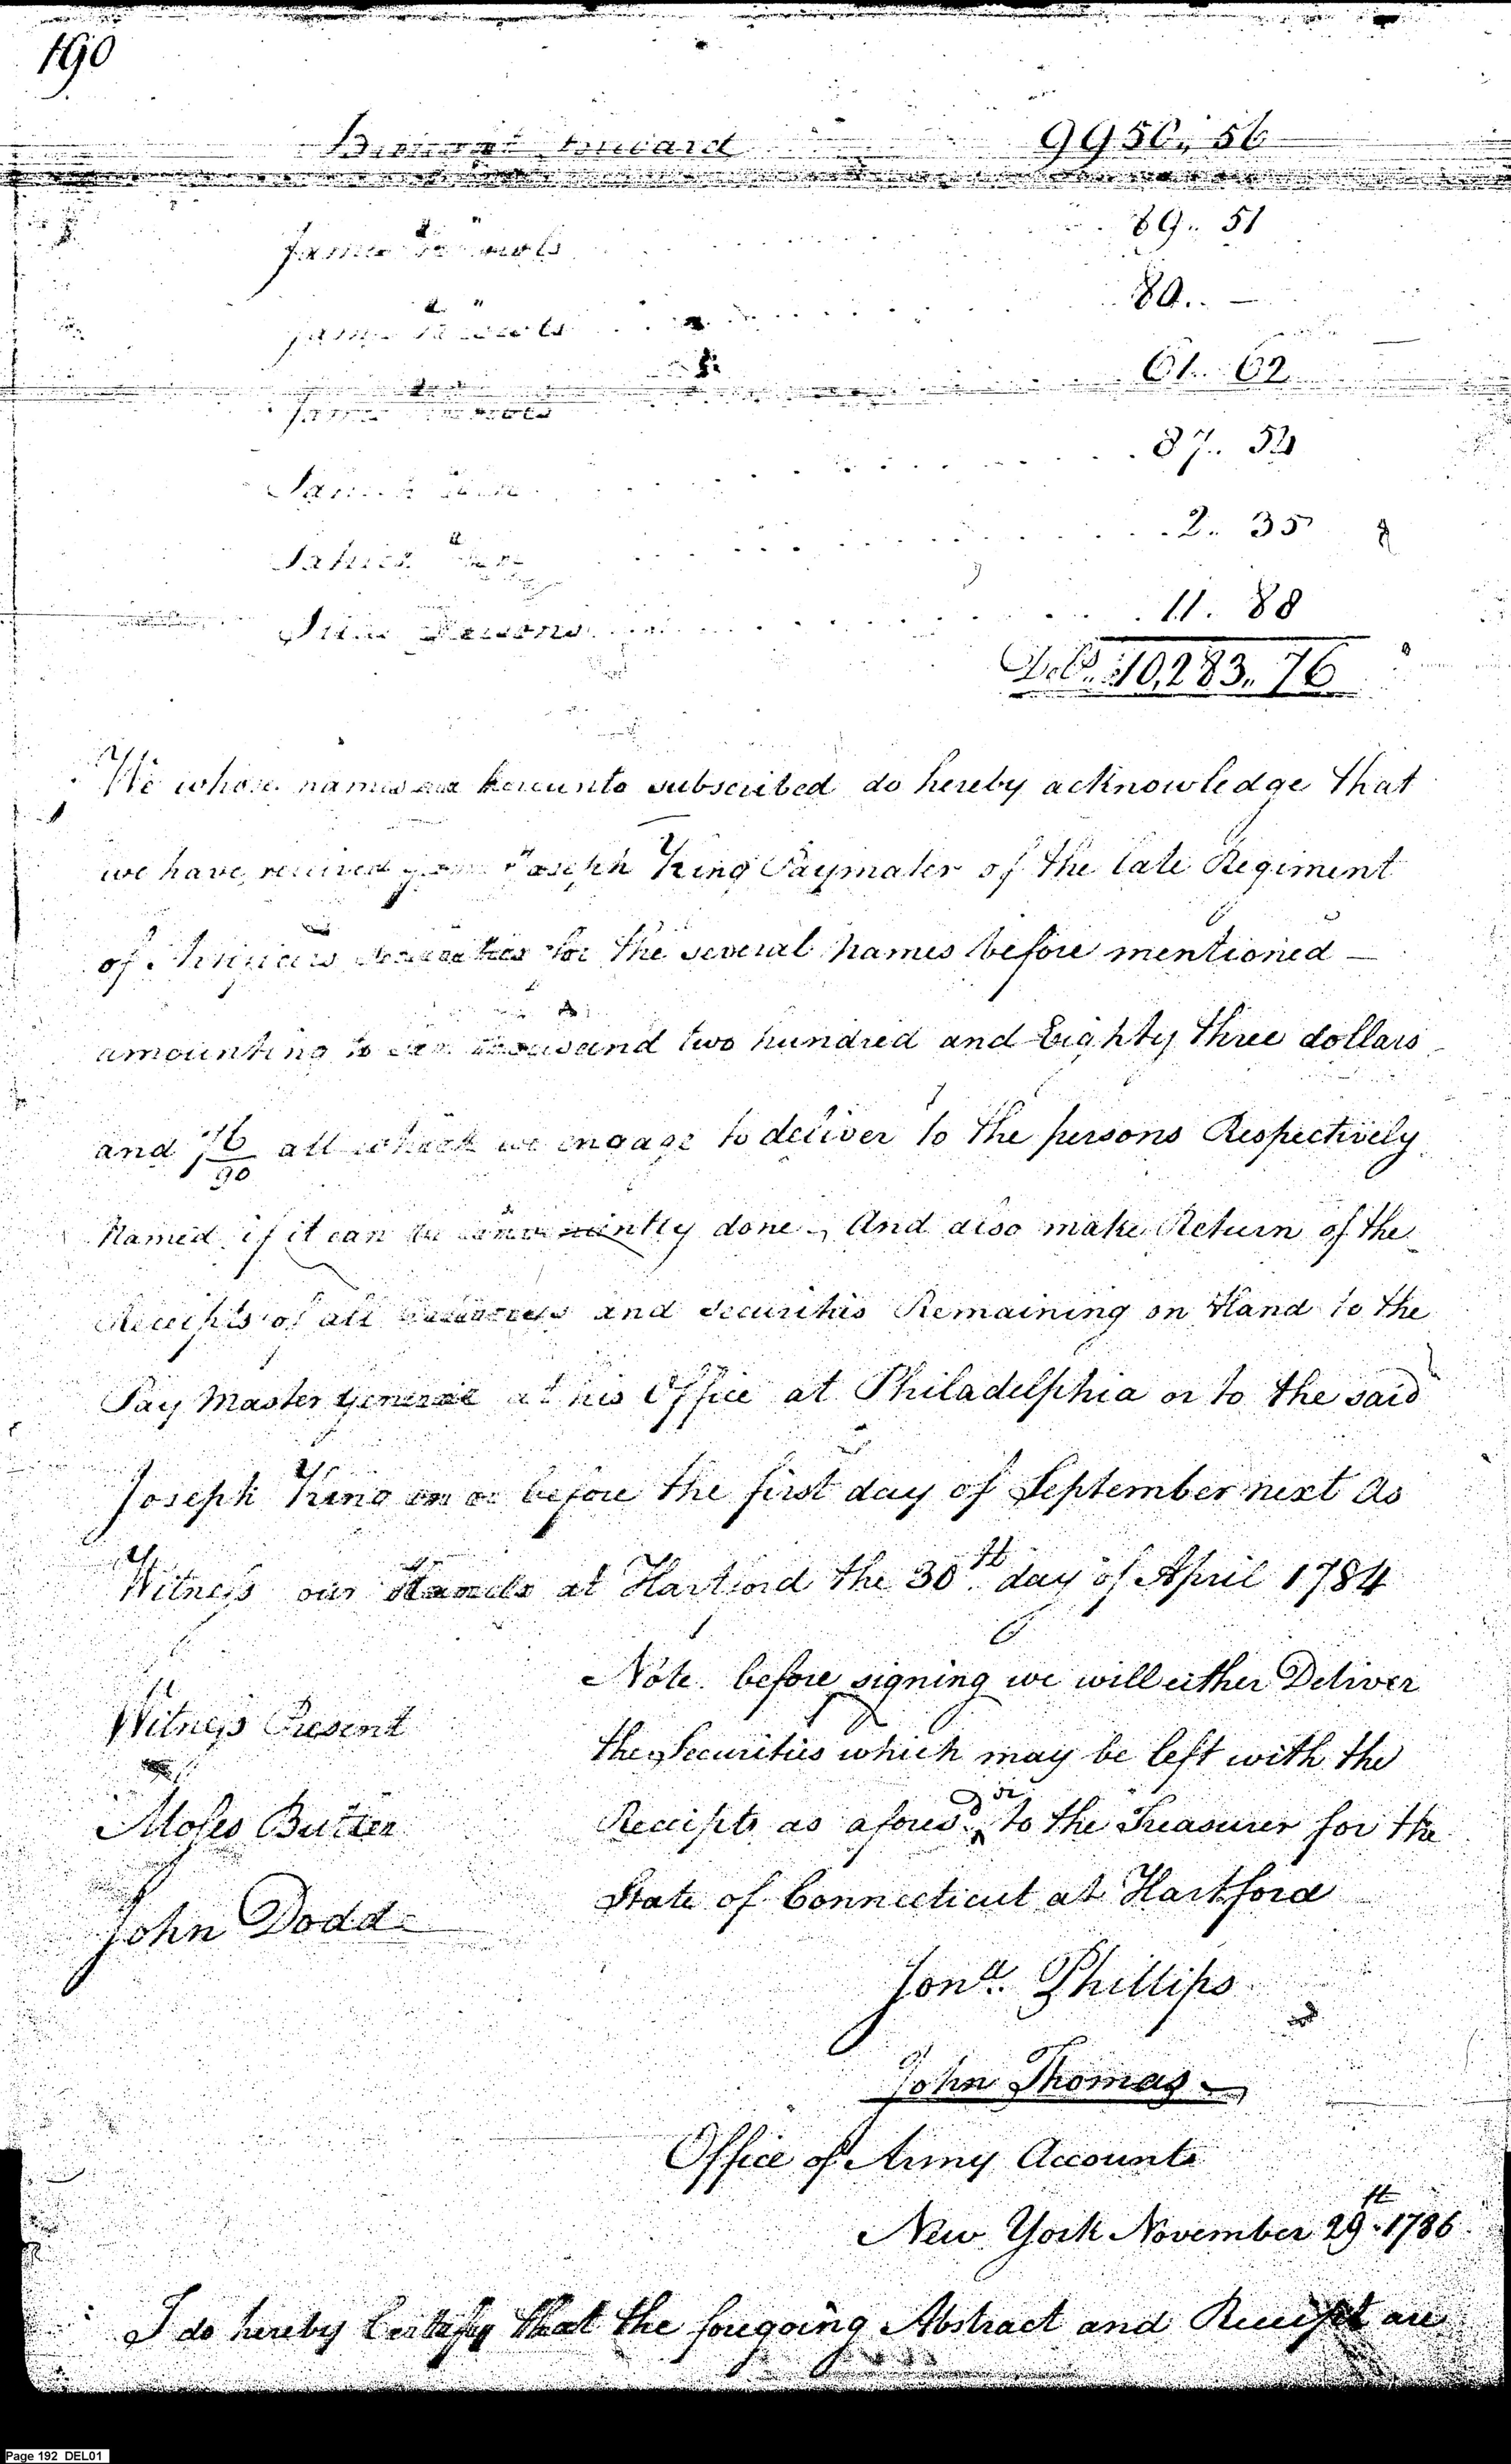 190
forward 9956.. 56
James 69.. 51
80.. —
61.. 62
87.. 52
2.. 35
11. 88
Dolls. 10,283.. 76
We whose names are hereunto subscribed do hereby acknowledge that
we have received from Joseph King Paymaster of the late Regiment
of Artificers securities for the several names before mentioned —
amounting to ten thousand two hundred and Eighty three dollars
and 76/90 all which we engage to deliver to the persons Respectively
Named if it can be conveniently done, And also make Return of the
Receipts of all and securities Remaining on Hand to the
Pay Master General at his Office at Philadelphia or to the said
Joseph King on or before the first day of September next As
Witness our Hands at Hartford the 30th day of April 1784
Note before signing we will either Deliver
Witness Present
the Securities which may be left with the
Moses Butler
Receipts as afores.d or to the Treasurer for the
State of Connecticut at Hartford
John Dodd
Jona. Phillips
John Thomas
Office of Army Accounts
New York November 29th 1786
I do hereby Certify that the foregoing Abstract and Receipt are
Page 192 DEL01